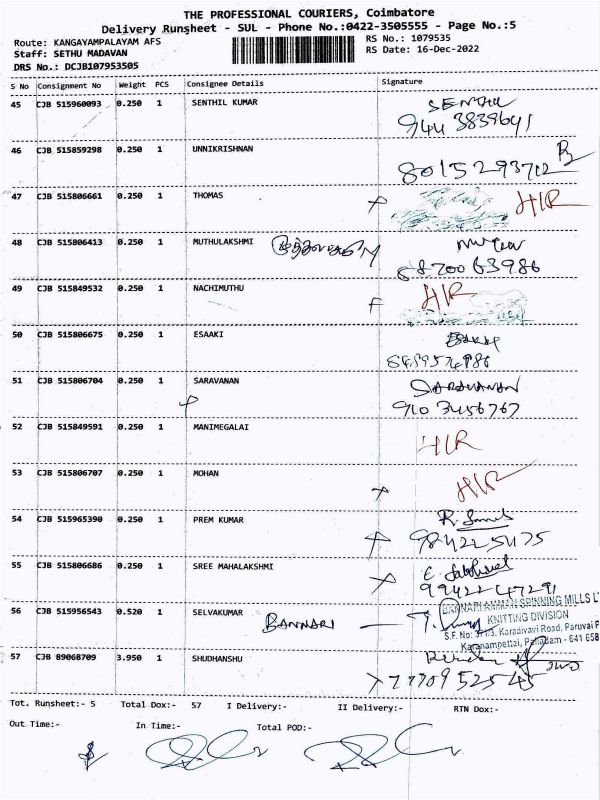 THE PROFESSIONAL COURIERS, Coimbatore
Delivery Runsheet - SUL - Phone No.:0422-3505555 - Page No.:5
Route: KANGAYAMPALAYAM AFS RS No.: 1079535
Staff: SETHU MADAVAN RS Date: 16-Dec-2022
DRS No.: DCJB107953505
S No Consignment No Weight PCS Consignee Details Signature
45 CJB 515960093 0.250 1 SENTHIL KUMAR SENTHIL
9443839641
46 CJB 515859298 0.250 1 UNNIKRISHNAN
8015293712
47 CJB 515806661 0.250 1 THOMAS HIR
48 CJB 515806413 0.250 1 MUTHULAKSHMI
49 CJB 515849532 0.250 1 NACHIMUTHU HIR
50 CJB 515806675 0.250 1 ESAAKI
51 CJB 515806704 0.250 1 SARAVANAN SARAVANAN
9103456767
52 CJB 515849591 0.250 1 MANIMEGALAI HIR
53 CJB 515806707 0.250 1 MOHAN HIR
54 CJB 515965390 0.250 1 PREM KUMAR
55 CJB 515806686 0.250 1 SREE MAHALAKSHMI
9942247291
56 CJB 515956543 0.520 1 SELVAKUMAR BANNARI
BANNARI AMMAN SPINNING MILLS LT
KNITTING DIVISION
S.F. No: 371/3, Karadivavi Road, Paruvai P
Karanampettai, Palladam - 641 658
57 CJB 89068709 3.950 1 SHUDHANSHU
7770952545
Tot. Runsheet:- 5 Total Dox:- 57 I Delivery:- II Delivery:- RTN Dox:-
Out Time:- In Time:- Total POD:-